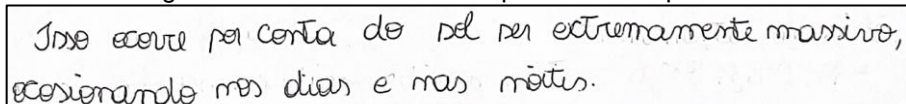 Isso ocorre por conta do sol ser extremamente massivo,
ocosionando nos dias e nas noites.